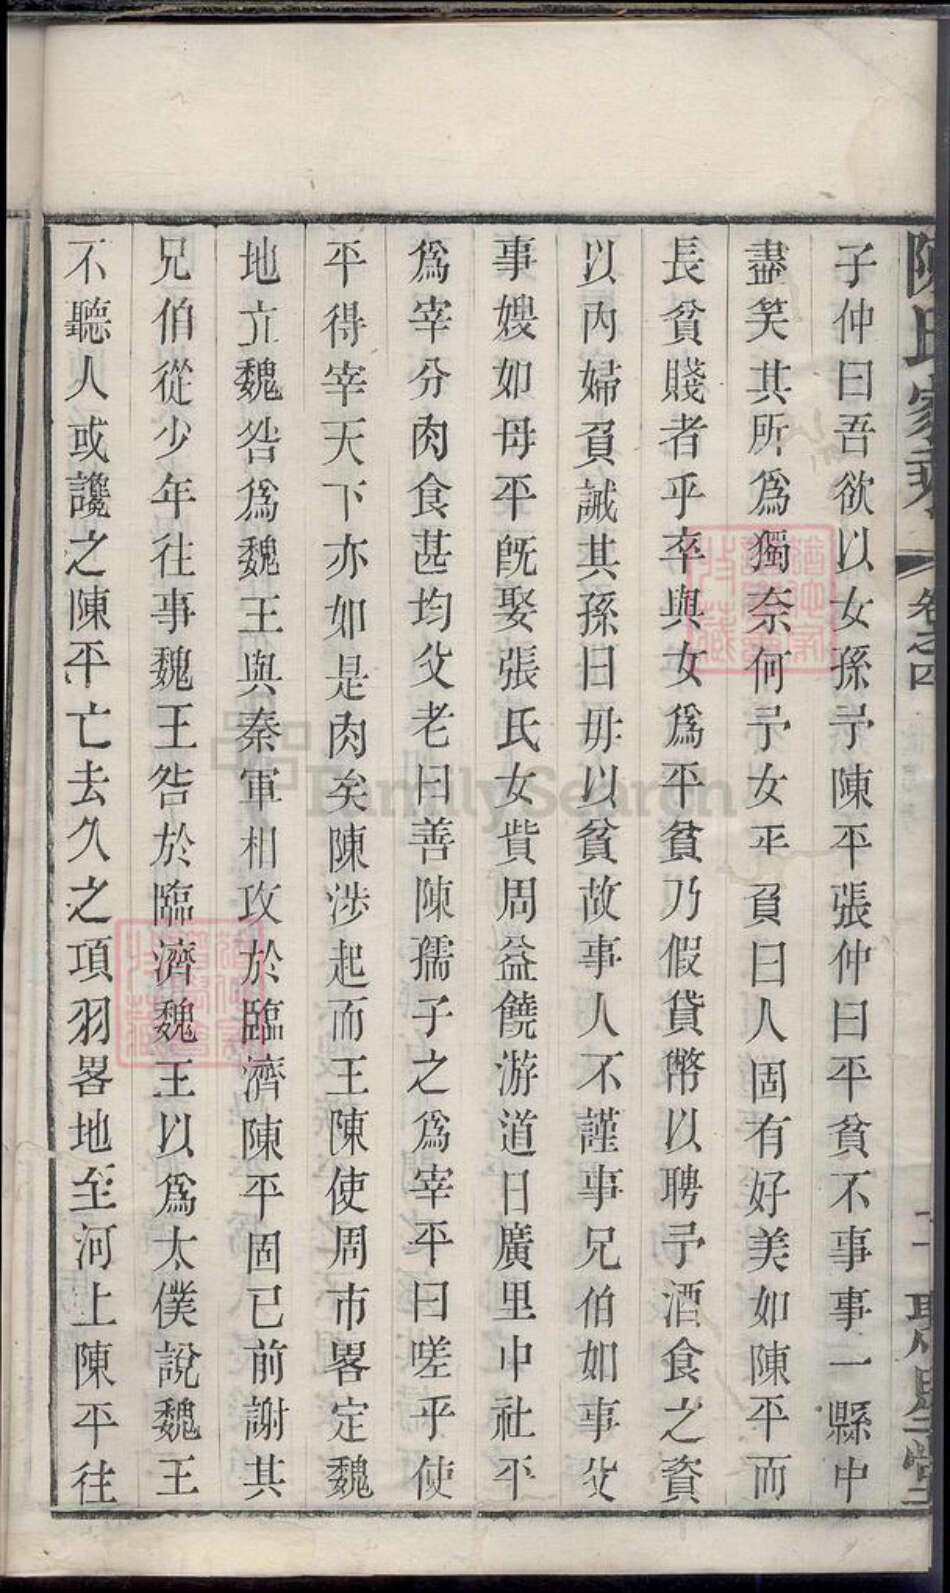 陳氏家乘 卷之四 二 聚星堂
子仲曰吾欲以女孫予陳平張仲曰平貧不事事一縣中
盡笑其所爲獨奈何予女平負曰人固有好美如陳平而
長貧賤者乎卒與女爲平貧乃假貸幣以聘予酒食之資
以內婦負誡其孫曰毋以貧故事人不謹事兄伯如事父
事嫂如母平旣娶張氏女貲周益饒游道日廣里中社平
爲宰分肉食甚均父老曰善陳孺子之爲宰平曰嗟乎使
平得宰天下亦如是肉矣陳涉起而王陳使周市畧定魏
地立魏咎爲魏王與秦軍相攻於臨濟陳平固已前謝其
兄伯從少年往事魏王咎於臨濟魏王以爲太僕說魏王
不聽人或讒之陳平亡去久之項羽畧地至河上陳平往
FamilySearch